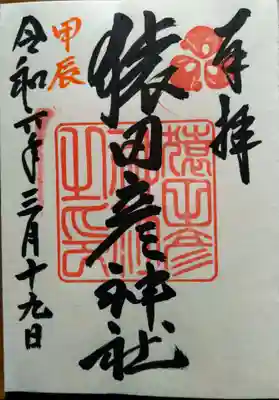 奉拝
猿田彦神社
甲辰
令和六年三月十九日
猿田彦
神社
之印